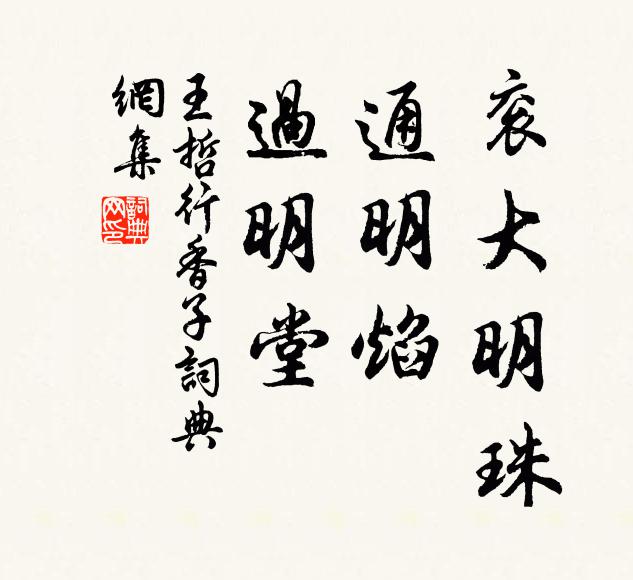 衮大明珠
通明焰
過明堂
王哲行香子詞典
網集
詞典
网印